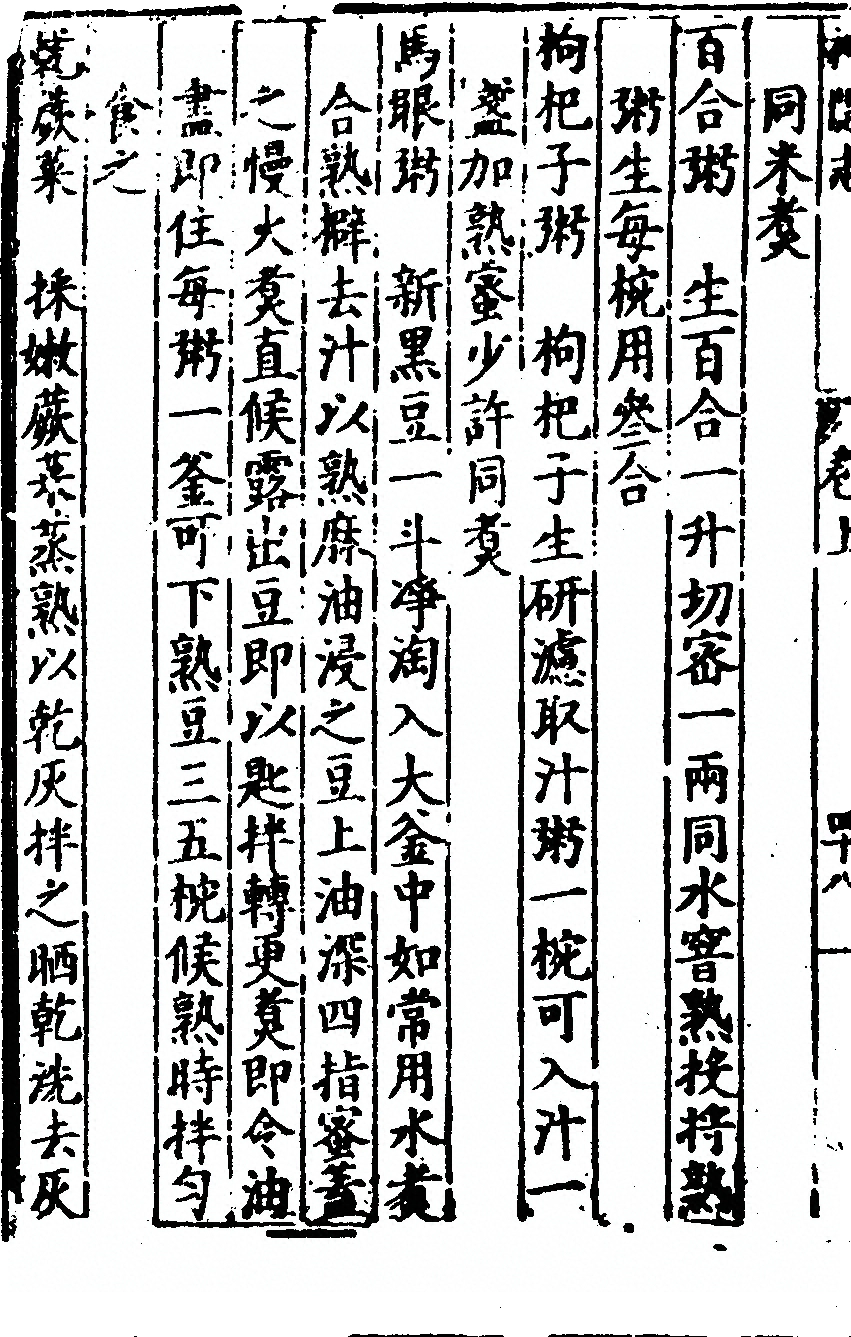 卷上
四十八
同米煑
百合粥　生百合一升切蜜一兩同水窨熟投将熟
粥生每椀用叄合
枸杞子粥　枸杞子生研濾取汁粥一椀可入汁一
盞加熟蜜少許同煑
馬眼粥　新黒豆一斗凈淘入大釜中如常用水煑
合熟擗去汁以熟麻油浸之豆上油深四指蜜蓋
之慢火煑直候露出豆即以匙拌轉更煑即令油
盡即住每粥一釜可下熟豆三五椀候熟時拌匀
食之
乾蕨菜　採嫩蕨菜蒸熟以乾灰拌之晒乾洗去灰